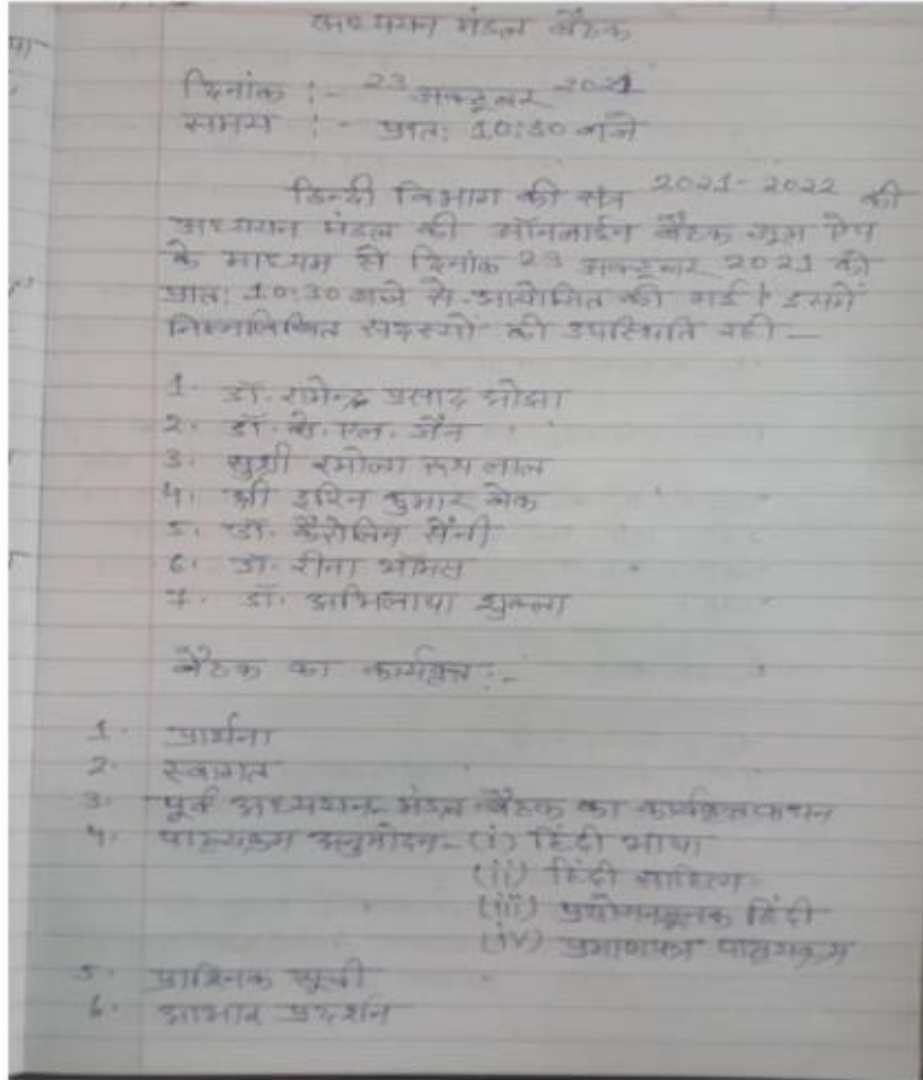 अध्ययन मंडल बैठक
दिनांक :- 23 अक्टूबर 2021
समय :- प्रात: 10:30 बजे
हिन्दी विभाग की सत्र 2021-2022 की
अध्ययन मंडल की ऑनलाईन बैठक ऐप
के माध्यम से दिनांक 23 अक्टूबर 2021 को
प्रात: 10:30 बजे से आयोजित की गई। इसमें
निम्नलिखित सदस्यों की उपस्थिति रही —
1. डॉ. प्रसाद ओझा
2. डॉ. के. एल. जैन
3. सुश्री रूथ लाल
4. श्री कुमार बेक
5. डॉ. कैरोलिन सैनी
6. डॉ. रीना थॉमस
7. डॉ. अभिलाषा शुक्ला
बैठक का कार्यवृत्त :-
1. प्रार्थना
2. स्वागत
3. पूर्व अध्ययन मंडल बैठक का कार्यवृत्त वाचन
4. पाठ्यक्रम अनुमोदन - (i) हिंदी भाषा
(ii) हिंदी साहित्य
(iii) प्रयोजनमूलक हिंदी
(iv) प्रमाणपत्र पाठ्यक्रम
5. प्राश्निक सूची
6. आभार प्रदर्शन